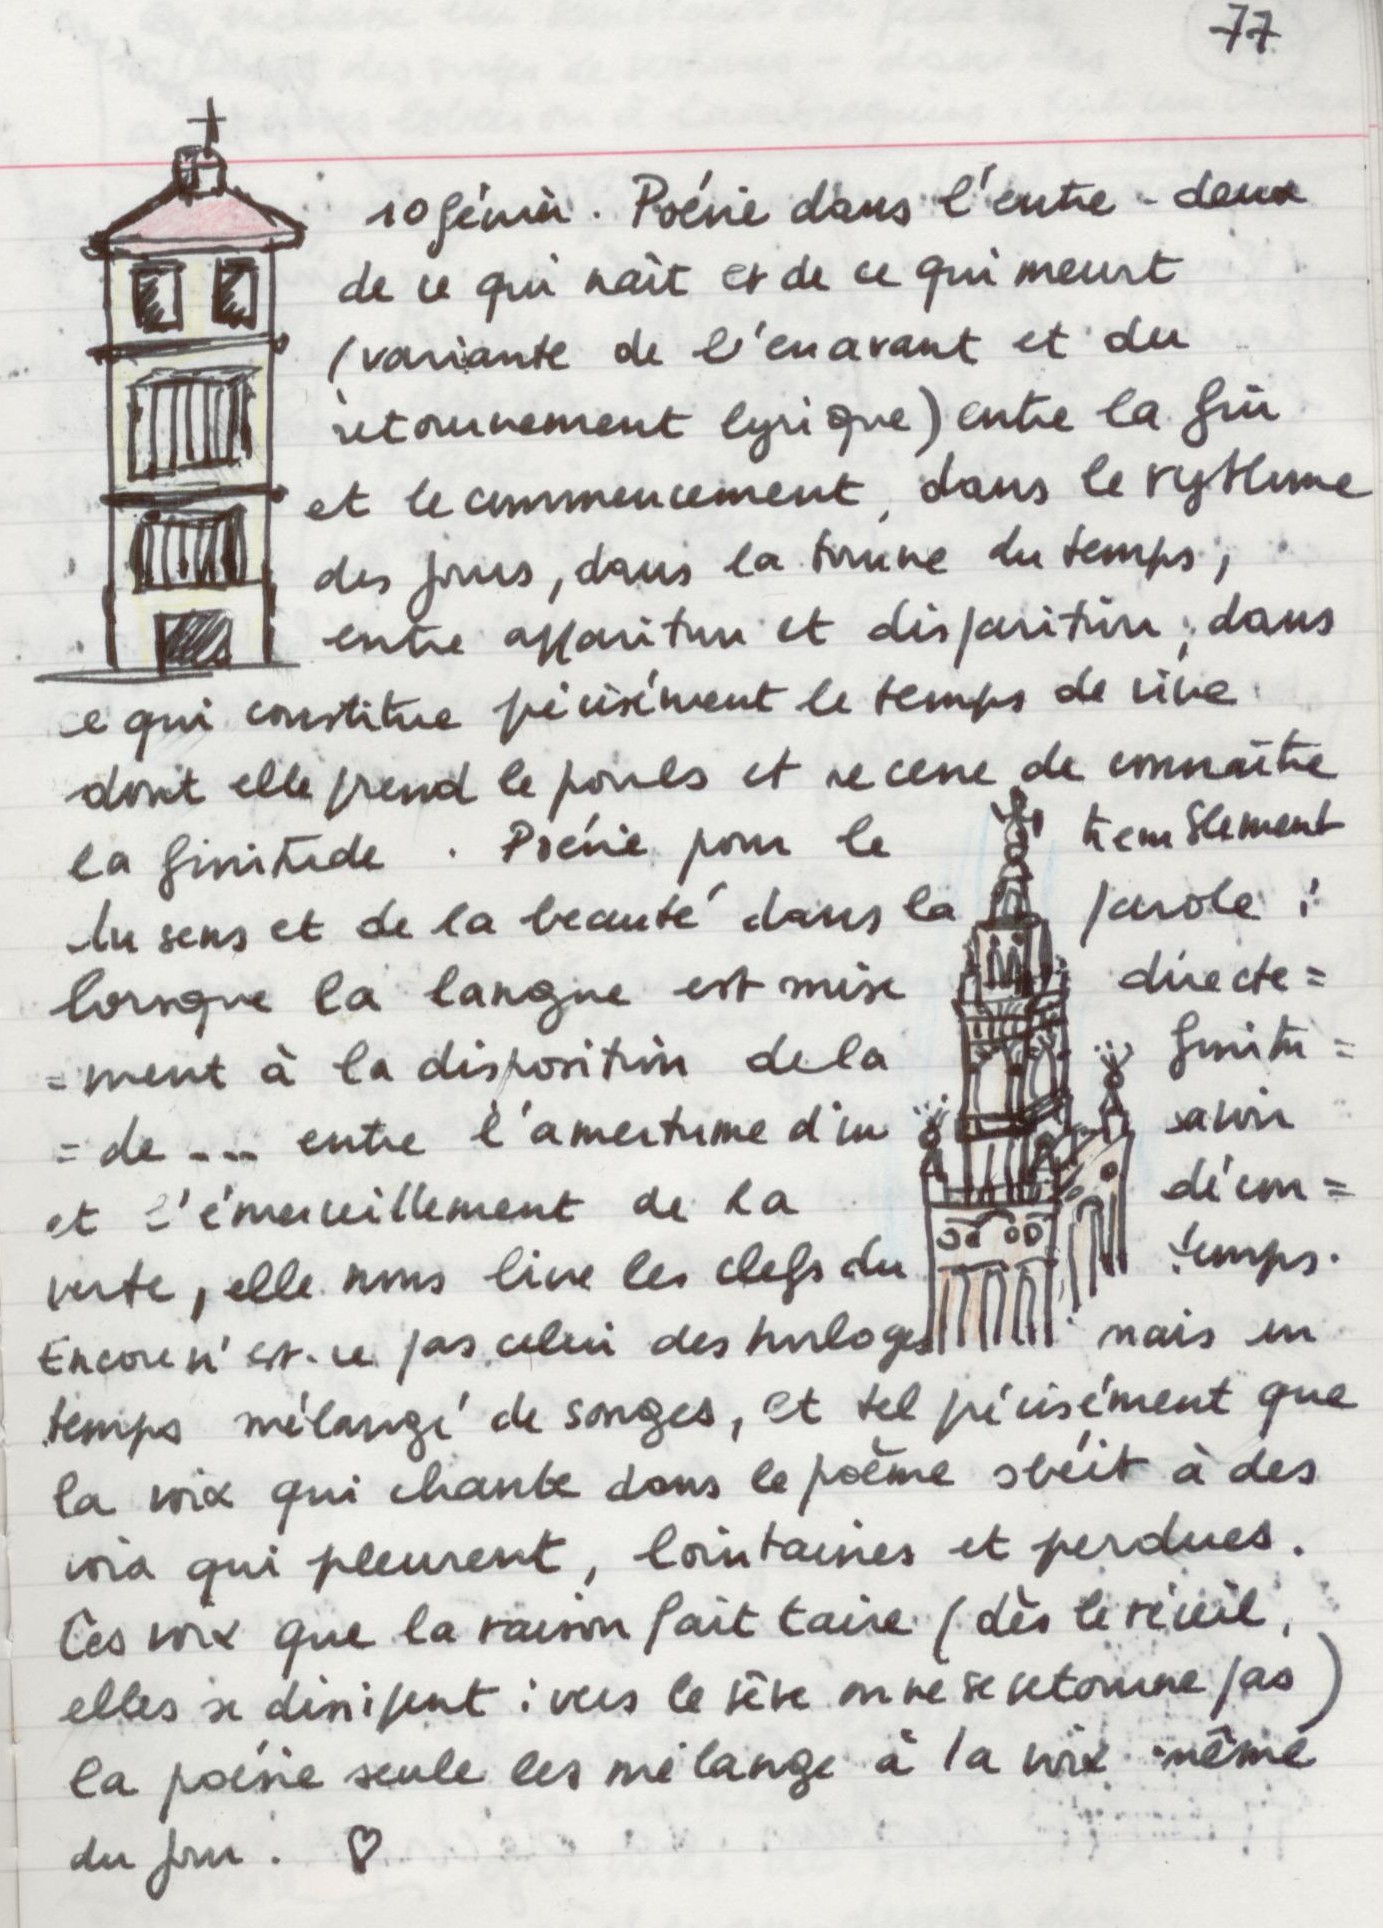 77
10 février. Poésie dans l'entre-deux
de ce qui naît et de ce qui meurt
(variante de l'en avant et du
retournement lyrique) entre la fin
et le commencement, dans le rythme
des jours, dans la tourne du temps,
entre apparition et disparition, dans
ce qui constitue précisément le temps de vivre
dont elle prend le pouls et ne cesse de connaître
la finitude. Poésie pour le tremblement
du sens et de la beauté dans la parole :
lorsque la langue est mise directe=
=ment à la disposition de la finitu=
=de --- entre l'amertume d'un savoir
et l'émerveillement de la décou=
verte, elle nous livre les clefs du temps.
Encore n'est-ce pas celui des horloges mais un
temps mélangé de songes, et tel précisément que
la voix qui chante dans le poème obéit à des
voix qui pleurent, lointaines et perdues.
Ces voix que la raison fait taire (dès le réveil,
elles se dissipent : vers le rêve on ne se retourne pas)
la poésie seule les mélange à la voix même
du jour. ♡